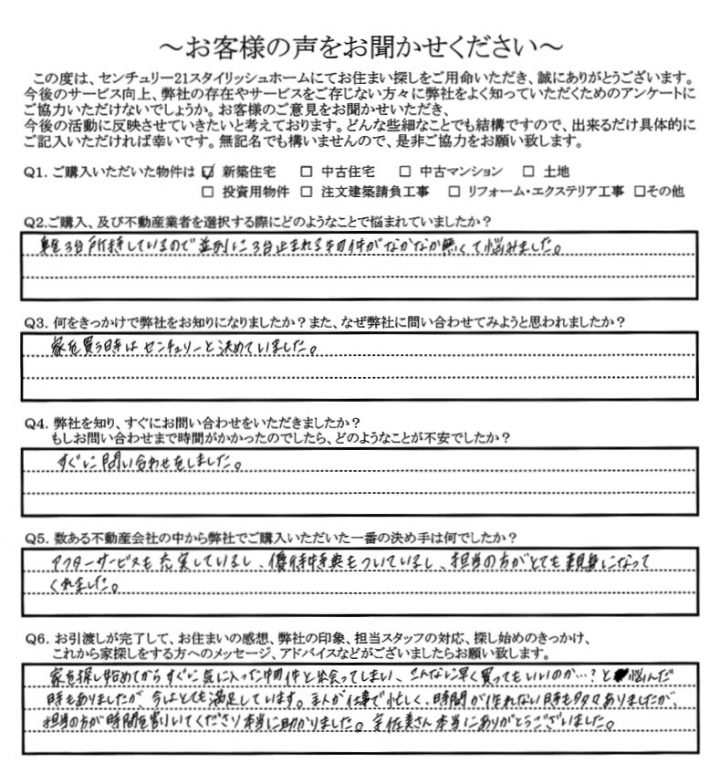 ～お客様の声をお聞かせください～
この度は、センチュリー21スタイリッシュホームにてお住まい探しをご用命いただき、誠にありがとうございます。
今後のサービス向上、弊社の存在やサービスをご存じない方々に弊社をよく知っていただくためのアンケートに
ご協力いただけないでしょうか。お客様のご意見をお聞かせいただき、
今後の活動に反映させていきたいと考えております。どんな些細なことでも結構ですので、出来るだけ具体的に
ご記入いただければ幸いです。無記名でも構いませんので、是非ご協力をお願い致します。
Q1. ご購入いただいた物件は ☑ 新築住宅 □ 中古住宅 □ 中古マンション □ 土地
□ 投資用物件 □ 注文建築請負工事 □ リフォーム・エクステリア工事 □その他
Q2.ご購入、及び不動産業者を選択する際にどのようなことで悩まれていましたか？
車を3台所持しているので並列に3台止まれる物件がなかなか無くて悩みました。
Q3. 何をきっかけで弊社をお知りになりましたか？また、なぜ弊社に問い合わせてみようと思われましたか？
家を買う時はセンチュリーと決めていました。
Q4. 弊社を知り、すぐにお問い合わせをいただきましたか？
もしお問い合わせまで時間がかかったのでしたら、どのようなことが不安でしたか？
すぐに問い合わせをしました。
Q5. 数ある不動産会社の中から弊社でご購入いただいた一番の決め手は何でしたか？
アフターサービスも充実しているし、優待特典もついているし、担当の方がとても親身になって
くれました。
Q6. お引渡しが完了して、お住まいの感想、弊社の印象、担当スタッフの対応、探し始めのきっかけ、
これから家探しをする方へのメッセージ、アドバイスなどがございましたらお願い致します。
家を探し始めてからすぐに気に入った物件と出会ってしまい、こんなに早く買ってもいいのか…？と悩んだ
時もありましたが、今はとても満足しています。主人が仕事で忙しく、時間が作れない時も多々ありましたが、
担当の方が時間を割いてくださり本当に助かりました。宇佐美さん本当にありがとうございました。